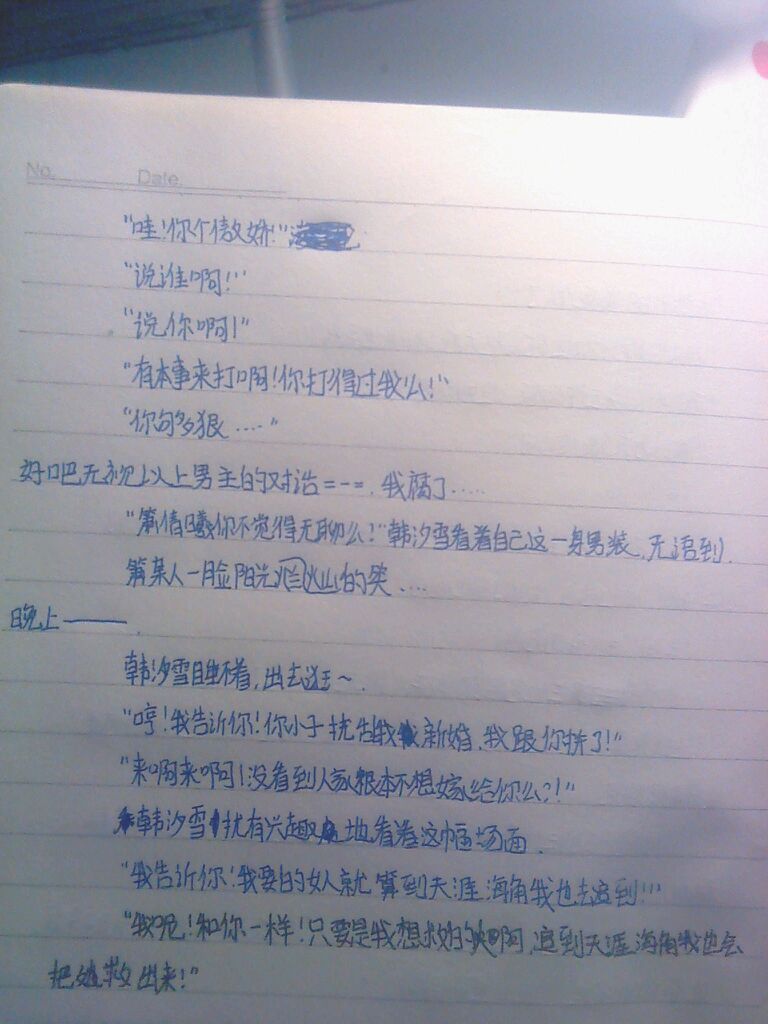 No.    Date
“哇!你个傲娇!”
“说谁啊!”
“说你啊!”
“有本事来打啊!你打得过我么!”
“你句多狠....”
好吧无视以上男主的对话=-=.我腐了.....
倩曦你不觉得无聊么!”韩汐雪看着自己这一身男装,无语到.
某人一脸阳光灿烂的笑....
晚上——
韩汐雪睡不着,出去逛~.
“哼!我告诉你!你小子扰我新婚,我跟你拼了!”
“来啊来啊!没看到人家根本不想嫁给你么?!”
韩汐雪扰有兴趣地看着这幅场面.
“我告诉你!我要的女人就算到天涯海角我也去追到!”
“我呢!和你一样!只要是我想救的啊,追到天涯海角我也会
把她救出来!”